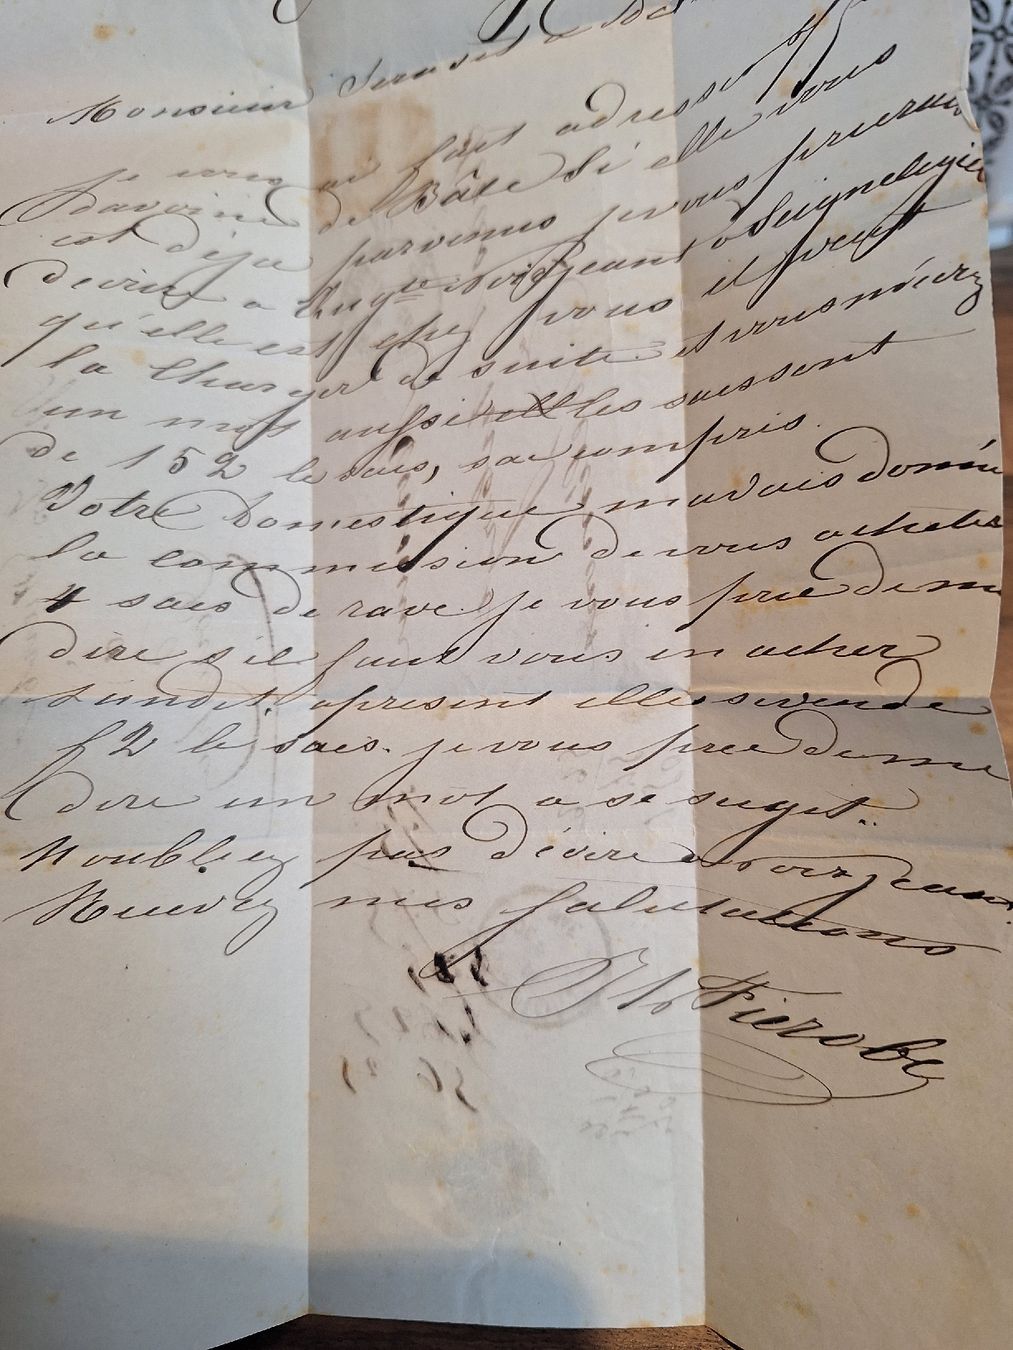 Monsieur
je vous ai fait adresser 45
d'avoine de Bâle Si elle vous
est déja parvenus je vous prierais
décrire a Augte Voizeant a Seignelegier
qu'elle est chez vous il peut
la Charger de suite. et vous m'écrez
un mot aussi les sacs sont
de 152 le sacs, sac compris.
Votre Domestique m'avais donné
la commission de vous acheter
4 sacs de rave je vous prie de me
dire s'il faut vous en acheter
Lundi. apresent elles se vende
f 2 le sacs. je vous prie de me
dire un mot a se suget..
Noubliez pas d'écrire a Voizeant.
Recevez mes Salutations
Fierobe